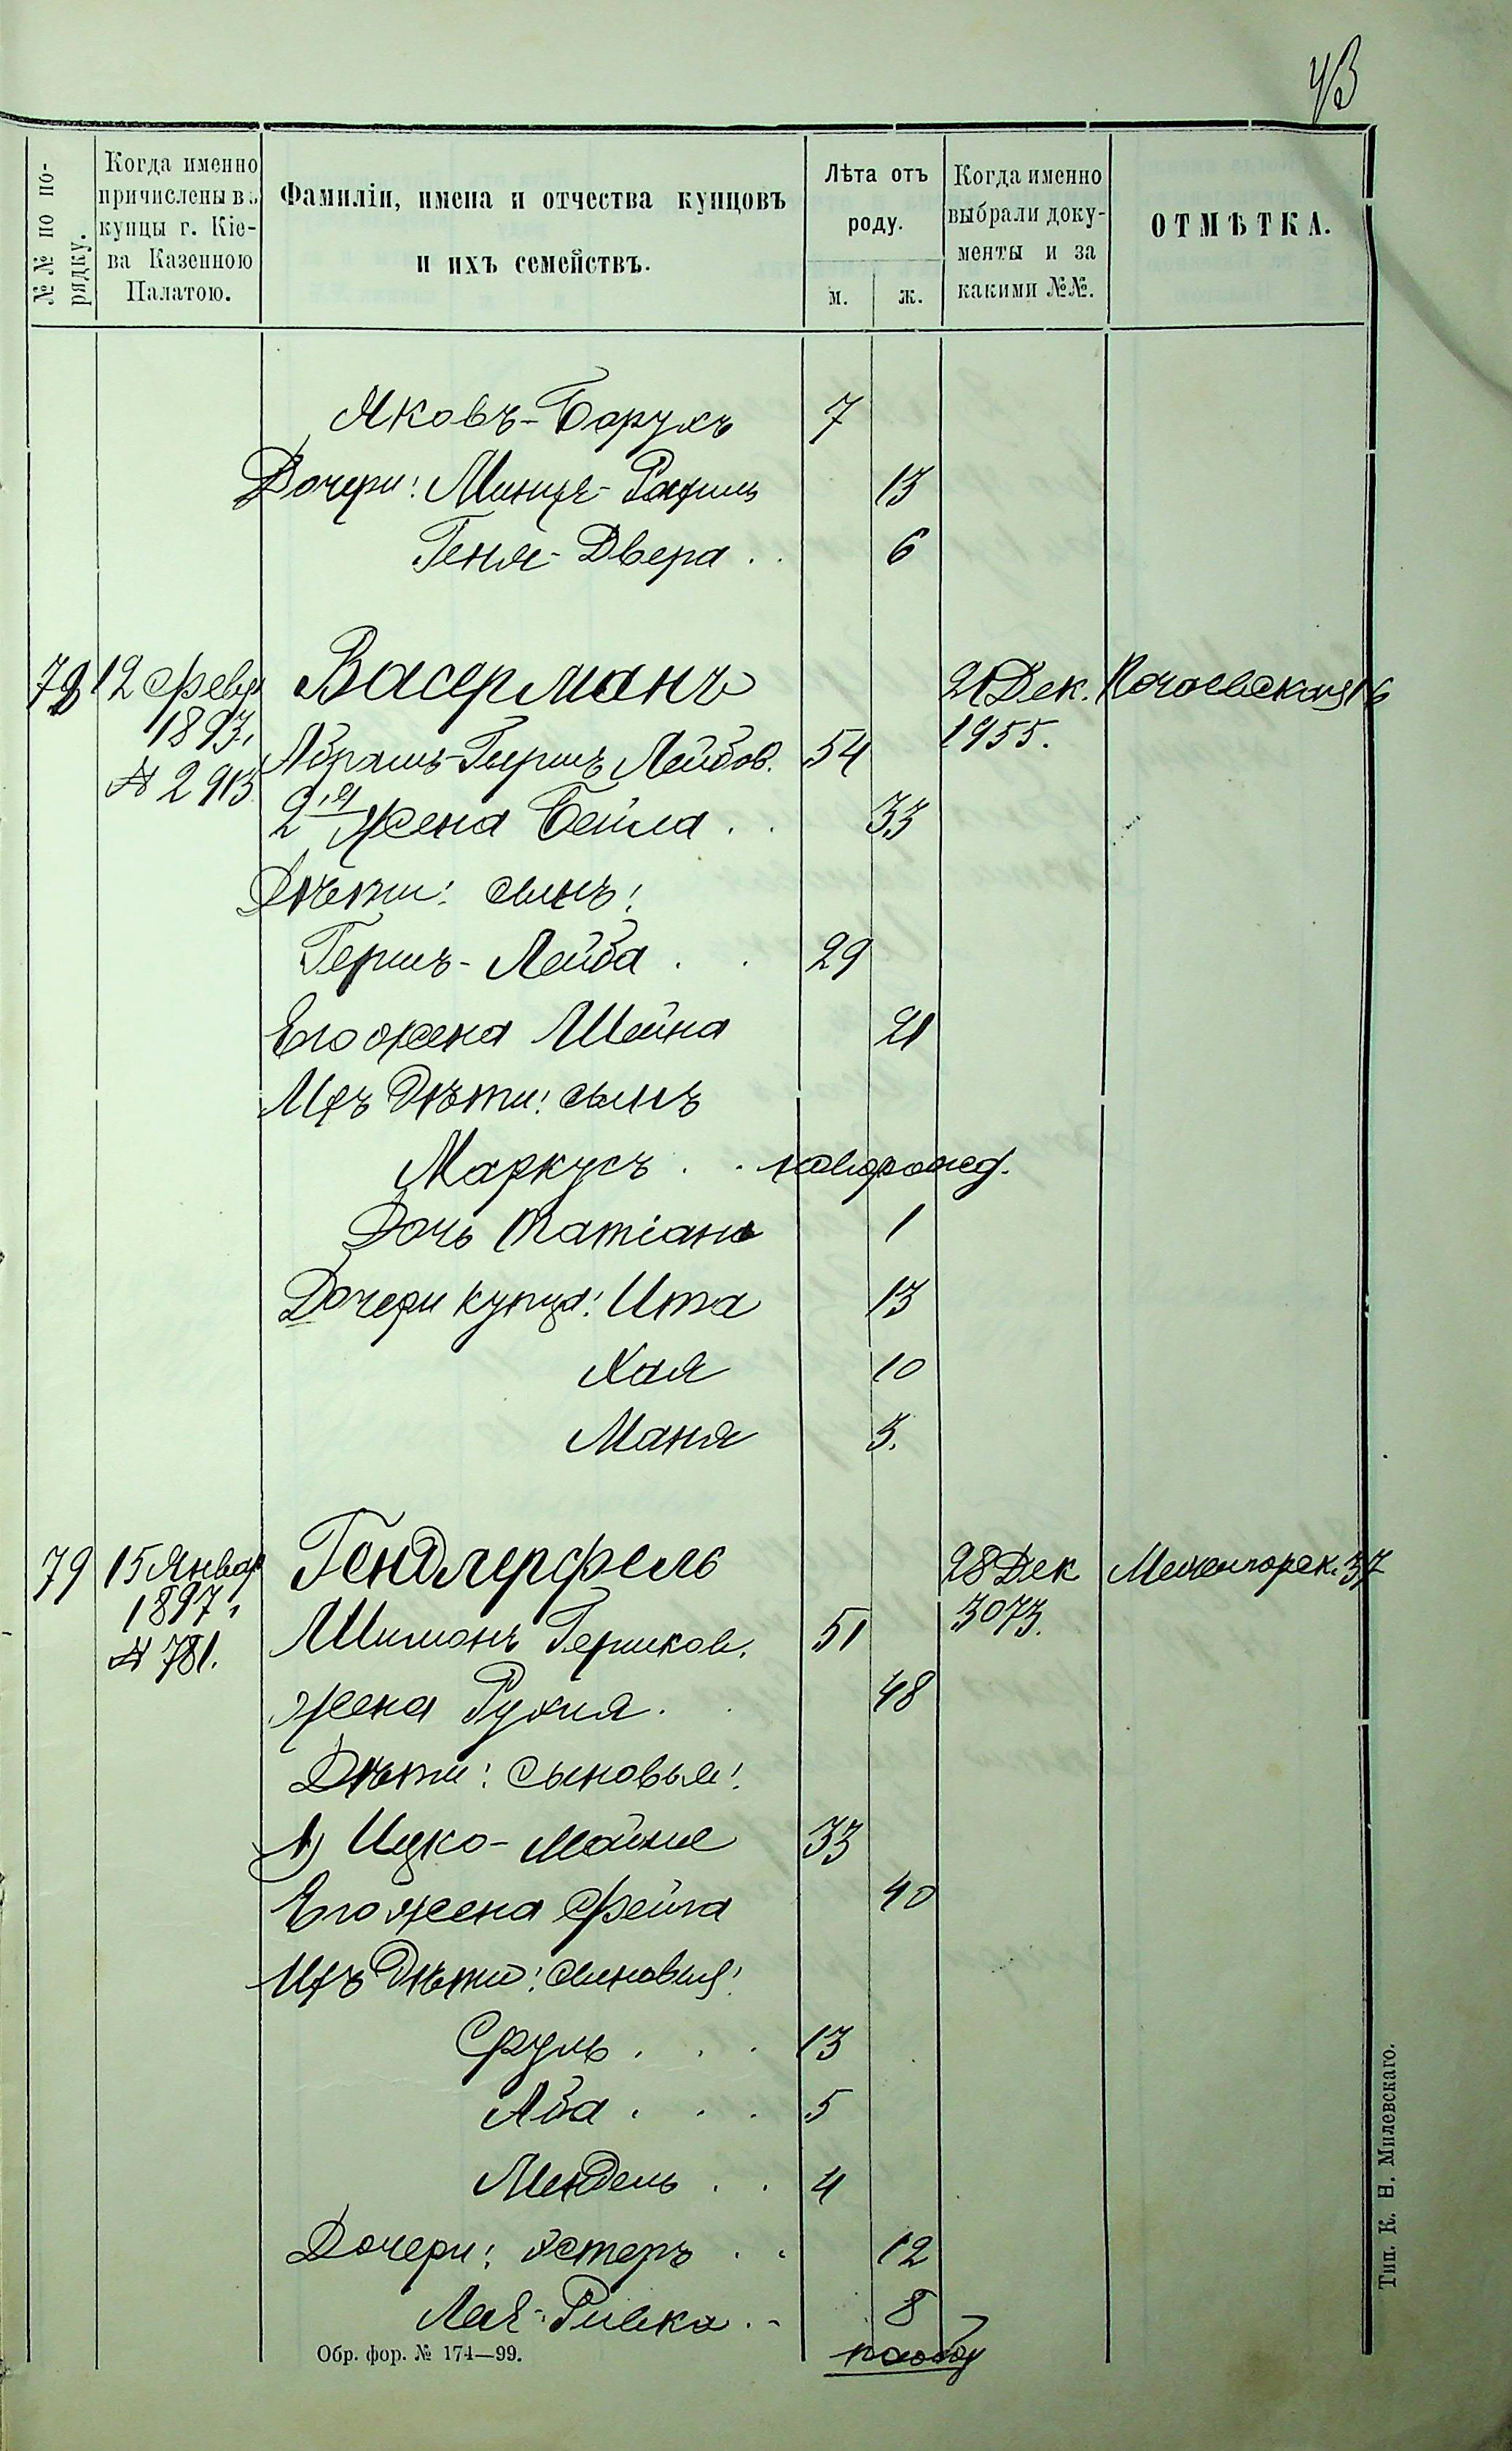 43
№№ по порядку.
Когда именно причислены въ купцы г. Кіева Казенною Палатою.
Фамиліи, имена и отчества купцовъ и ихъ семействъ.
Лѣта отъ роду.
м. ж.
Когда именно выбрали документы и за какими №№.
ОТМѢТКА.
Яковъ-Борухъ 7
Дочери: Минця- 13
Геня-Двера . . 6
78 12 февр Васерманъ 21 Дек. Почаевская 16
1897, Абрамъ-Гершъ Лейбов. 54 1955.
№ 2913. 2ая Жена Бейла . . 33
Дѣти: сынъ:
Гершъ-Лейба . . 29
Его жена Шейна 21
Ихъ дѣти: сынъ
Маркусъ . . новорожд.
Дочь Татіана 1
Дочери купца: Ита 13
Хая 10
Маня 3.
79 15 Январ Гендлерфель 28 Дек Межигорск. 37
1897, Шимонъ Гершков. 51 3073.
№ 781.
жена Рухля . . 48
Дѣти: сыновья:
1) Ицко-Мойше 33
Его жена Фейга 40
Ихъ дѣти: сыновья:
Сруль . . . 13
Аба . . . 5
Мендель . . 4
Дочери: Эстеръ . . 12
Лея-Ривка . - 8
Обр. фор. № 174—99.
Тип. К. Н. Милевскаго.